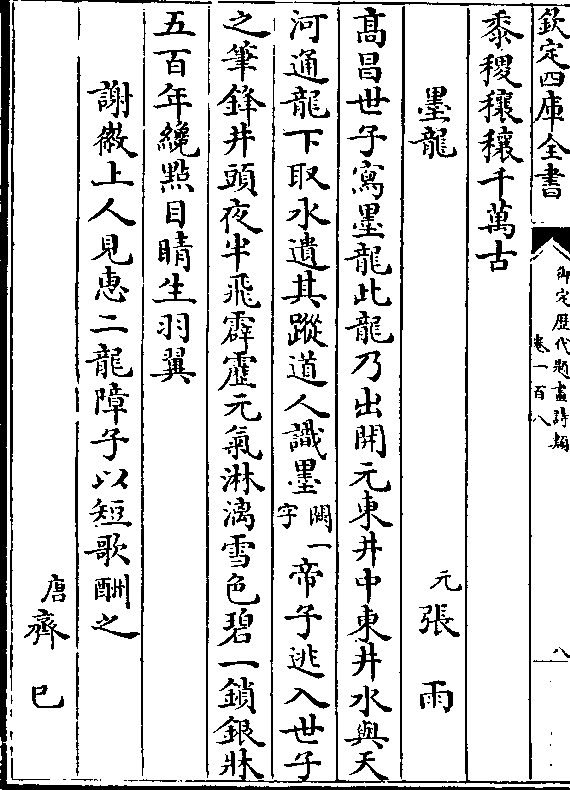 欽定四庫全書
御定歷代題畫詩類
卷一百八
八
黍稷穰穰千萬古
墨龍
元張雨
高昌世子寫墨龍此龍乃出開元東井中東井水與天
河通龍下取水遺其蹤道人識墨闕一字帝子逃入世子
之筆鋒井頭夜半飛霹靂元氣淋漓雪色碧一鎖銀牀
五百年纔點目睛生羽翼
謝徽上人見惠二龍障子以短歌酬之
唐齊己